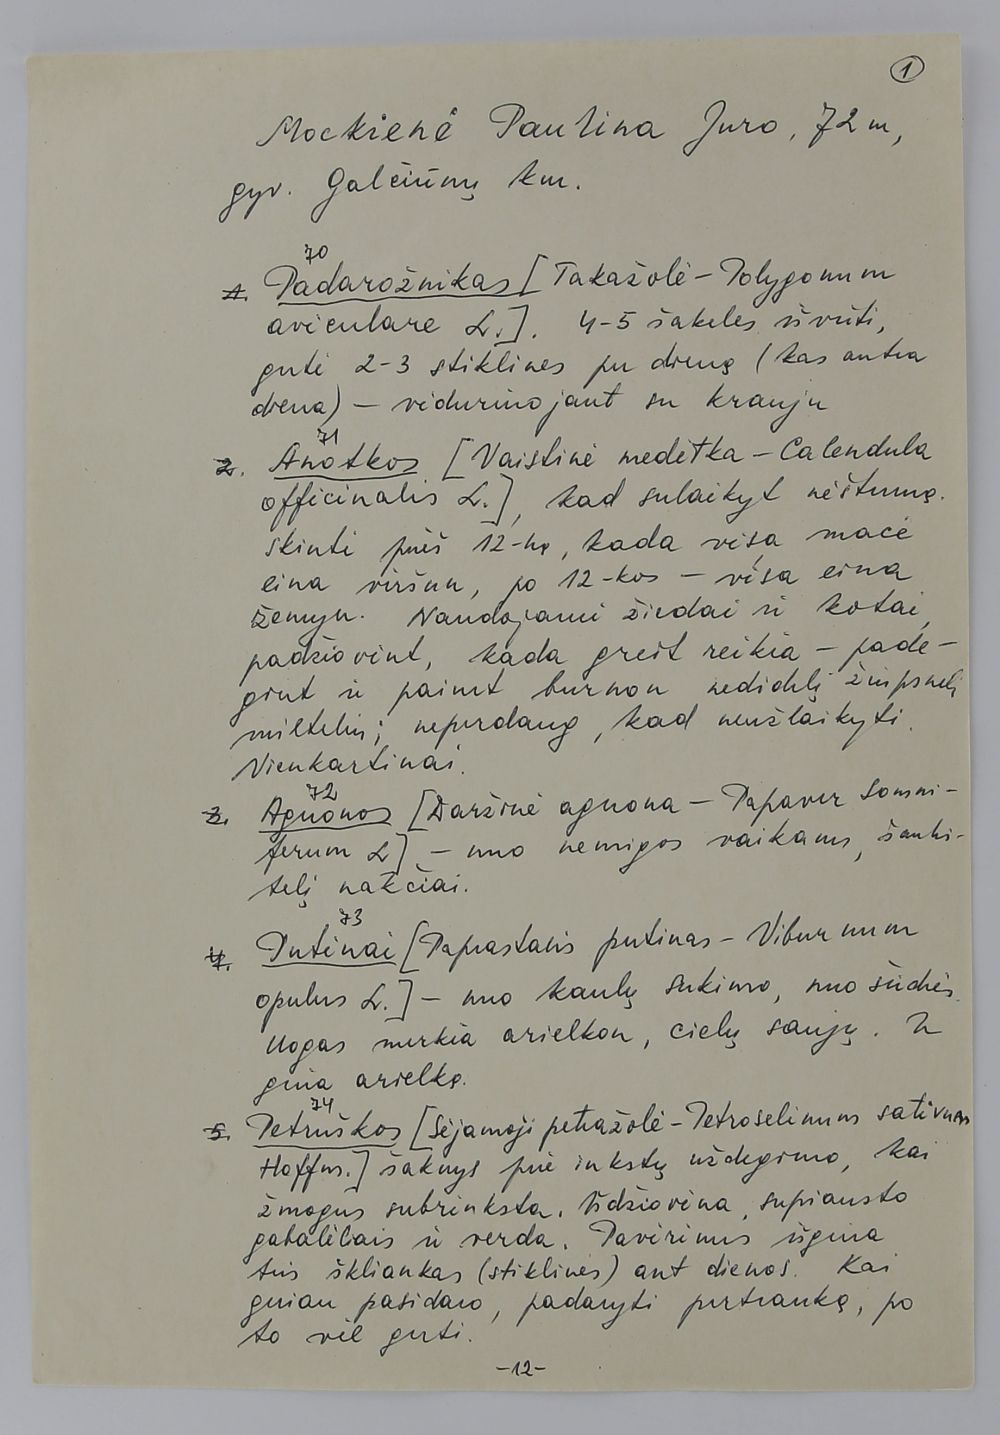 1
Mockienė Paulina Juro, 72 m,
gyv. Galčiūnų km.
70
1. Padarožnikas [Takažolė - Polygonum
aviculare L.]. 4-5 šakeles išvirti,
gerti 2-3 stiklines per dieną (kas antra
diena) - viduriuojant su krauju
71
2. Anotkos [Vaistinė medetka - Calendula
officinalis L.], kad sulaikyt nėštumą.
Skinti prieš 12-ką, kada visa macė
eina viršun, po 12-kos - visa eina
žemyn. Naudojami žiedai ir kotai,
padžiovint, kada greit reikia - pade-
gint ir paimt burnon nedidelį žiupsnelį
miltelių; neperdaug, kad neužlaikyti.
Vienkartinai.
72
3. Aguonos [Daržinė aguona - Papaver Somni-
ferum L] - nuo nemigos vaikams, šaukš-
telį nakčiai.
73
4. Putinai [Paprastasis putinas - Viburnum
opulus L.] - nuo kaulų sukimo, nuo širdies.
Uogas merkia arielkon, cielų saujų. Ir
geria arielką.
74
5. Petruškos [Sėjamoji petražolė - Petroselinum sativum
Hoffm.] šaknys prie inkstų uždegimo, kai
žmogus subrinksta. Išdžiovina, supiausto
gabalėliais ir verda. Pavirinus išgeria
tris škliankas (stiklines) ant dienos. Kai
geriau pasidaro, padaryti pertrauką, po
to vėl gerti.
-12-